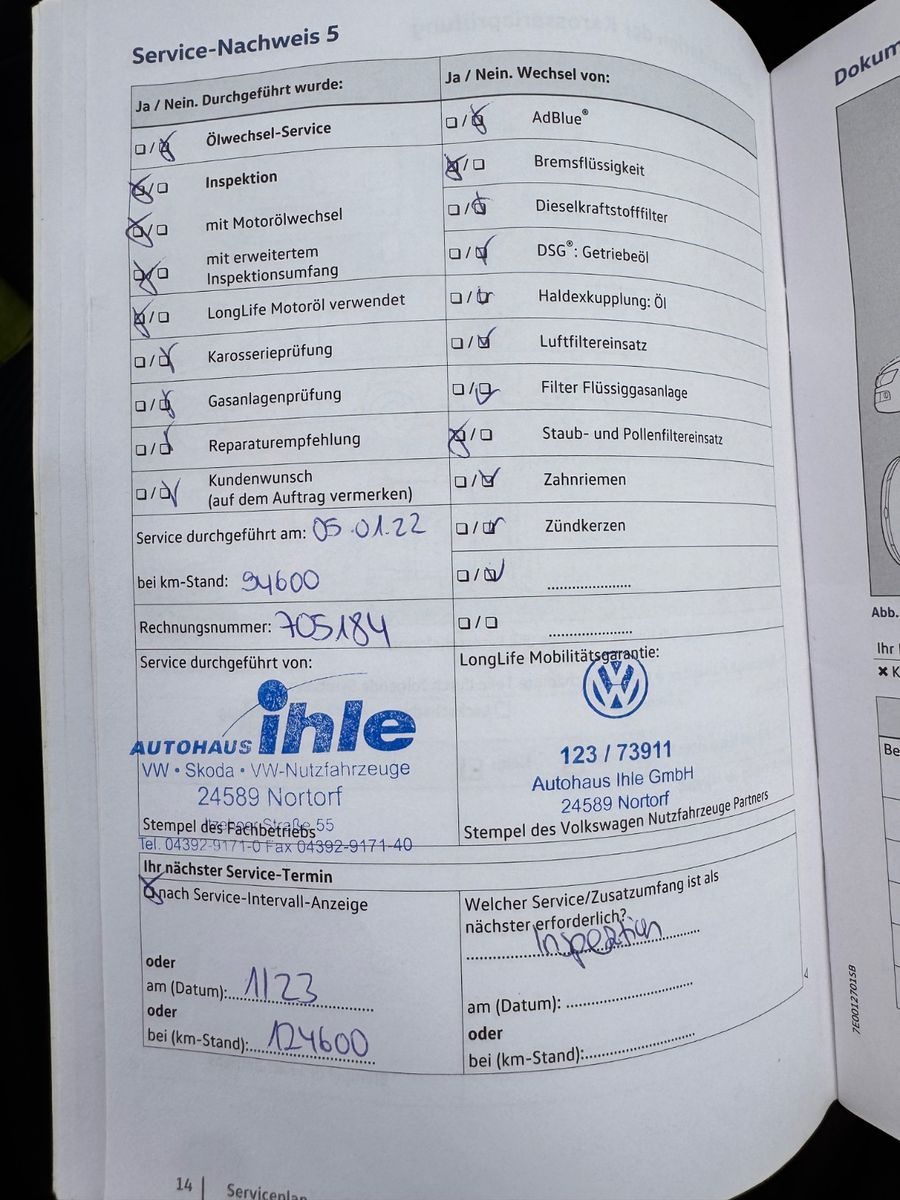 Service-Nachweis 5
Ja / Nein. Durchgeführt wurde:
☐ / ☒ Ölwechsel-Service
☒ / ☐ Inspektion
☒ / ☐ mit Motorölwechsel
☒ / ☐ mit erweitertem
Inspektionsumfang
☒ / ☐ LongLife Motoröl verwendet
☐ / ☒ Karosserieprüfung
☐ / ☒ Gasanlagenprüfung
☐ / ☒ Reparaturempfehlung
☐ / ☒ Kundenwunsch
(auf dem Auftrag vermerken)
Service durchgeführt am: 05.01.22
bei km-Stand: 94600
Rechnungsnummer: 705184
Service durchgeführt von:
AUTOHAUS ihle
VW • Skoda • VW-Nutzfahrzeuge
24589 Nortorf
Itzehoer Straße 55
Stempel des Fachbetriebs
Tel. 04392-9171-0 Fax 04392-9171-40
Ja / Nein. Wechsel von:
☐ / ☒ AdBlue®
☒ / ☐ Bremsflüssigkeit
☐ / ☒ Dieselkraftstofffilter
☐ / ☒ DSG®: Getriebeöl
☐ / ☒ Haldexkupplung: Öl
☐ / ☒ Luftfiltereinsatz
☐ / ☒ Filter Flüssiggasanlage
☒ / ☐ Staub- und Pollenfiltereinsatz
☐ / ☒ Zahnriemen
☐ / ☒ Zündkerzen
☐ / ☒ ....................
☐ / ☐ ....................
LongLife Mobilitätsgarantie:
VW
123 / 73911
Autohaus Ihle GmbH
24589 Nortorf
Stempel des Volkswagen Nutzfahrzeuge Partners
Ihr nächster Service-Termin
☒ nach Service-Intervall-Anzeige
oder
am (Datum): 1/23
oder
bei (km-Stand): 124600
Welcher Service/Zusatzumfang ist als
nächster erforderlich?
Inspektion
am (Datum): ....................
oder
bei (km-Stand): ....................
14 | Serviceplan
7E0012701SB
Dokum
Abb.
Ihr
✖ K
Be